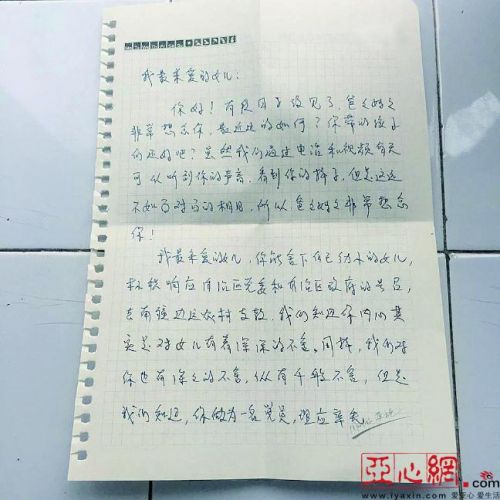 我最亲爱的女儿:
你好!有段日子没见了,爸爸妈妈
非常想念你,最近过的如何?你带的孩子
们还好吧?虽然我们通过电话和视频每天
可以听到你的声音,看到你的样子,但是远远
不如面对面的相见,所以,爸爸妈妈非常想念
你!
我最亲爱的女儿,你能舍下自己幼小的女儿,
积极响应自治区党委和自治区政府的号召,
去南疆边远农村支教,我们知道你内心其
实是对女儿有着深深的不舍。同样,我们对
你也有深深的不舍,纵有千般不舍,但是
我们知道,你做为一名党员,理应率先
亚心網.com
www.iyaxin.com 爱亚心 爱生活